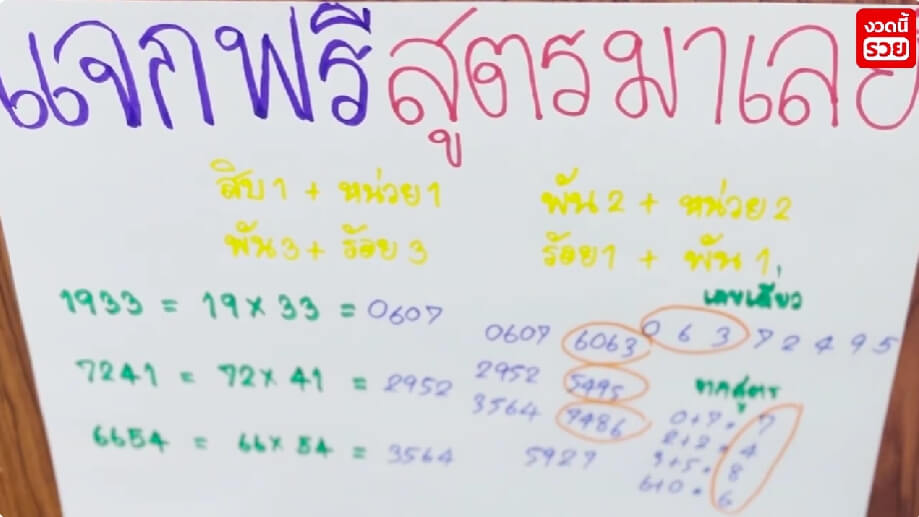 แจกฟรีสูตรมาเลย
งวดนี้
รวย
สิบ 1 + หน่วย 1
พัน 2 + หน่วย 2
พัน 3 + ร้อย 3
ร้อย 1 + พัน 1
เลขเดี่ยว
1933 = 19 x 33 = 0607
0607 6063 0 6 3 7 2 4 9 5
7241 = 72 x 41 = 2952
2952 5495
3564 7486
6654 = 66 x 54 = 3564
5927
ทกสูตร
0+7 = 7
2+2 = 4
3+5 = 8
6+0 = 6